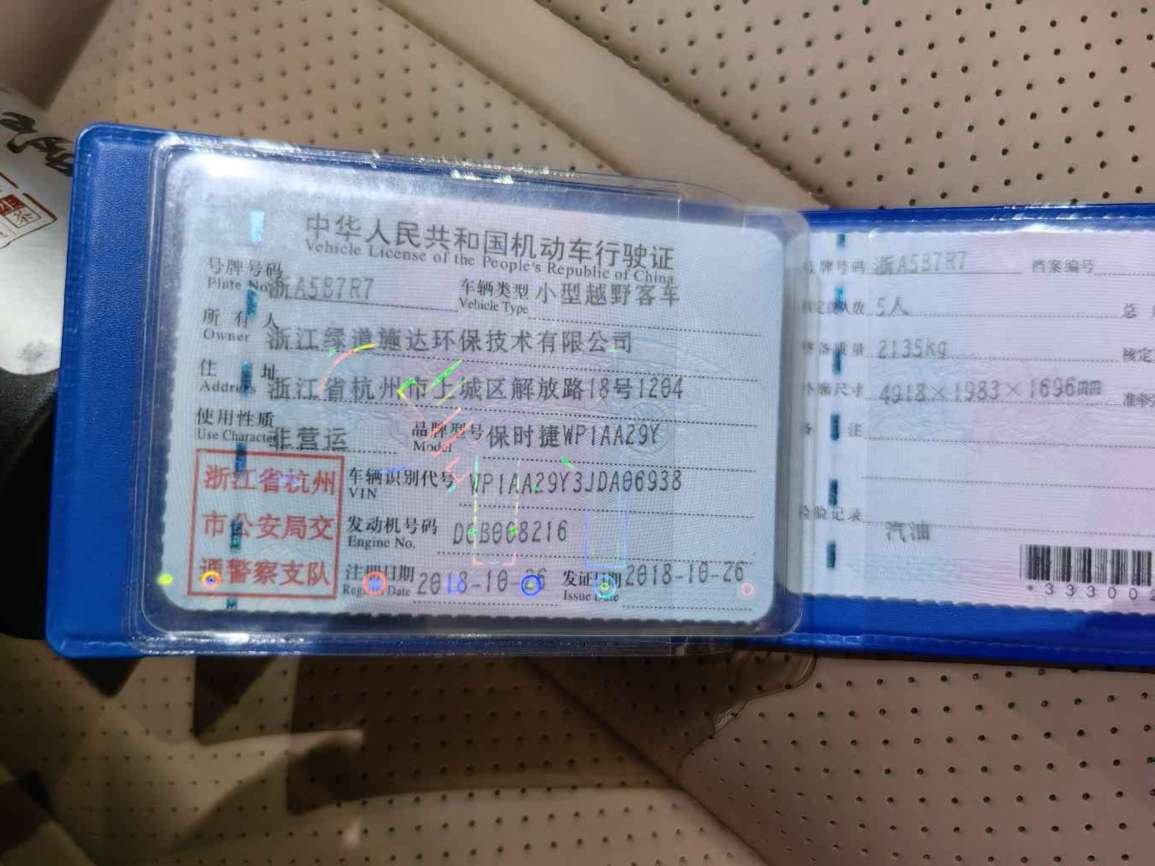 中华人民共和国机动车行驶证
Vehicle License of the People's Republic of China
号牌号码 浙A5B7R7 车辆类型 小型越野客车
Plate No. Vehicle Type
所有人 浙江绿道施达环保技术有限公司
Owner
住址 浙江省杭州市上城区解放路18号1204
Address
使用性质 非营运 品牌型号 保时捷WP1AA29Y
Use Character Model
浙江省杭州
市公安局交
通警察支队
车辆识别代号 WP1AA29Y3JDA06938
VIN
发动机号码 DCB008216
Engine No.
注册日期 2018-10-26 发证日期 2018-10-26
Register Date Issue Date
号牌号码 浙A5B7R7 档案编号
核定载人数 5人 总
整备质量 2135kg 核定
外廓尺寸 4918×1983×1696mm 准牵
备注
检验记录
汽油
*33300